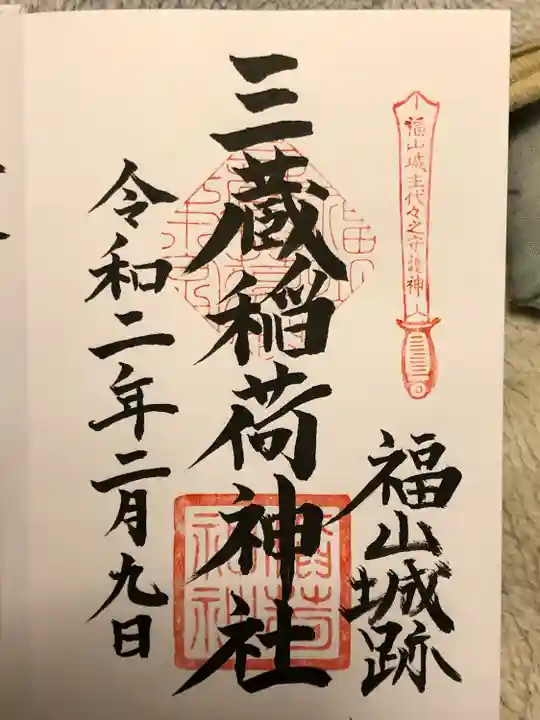 福山城主代々之守護神
福山城跡
三蔵稲荷神社
令和二年二月九日
稲荷
神社